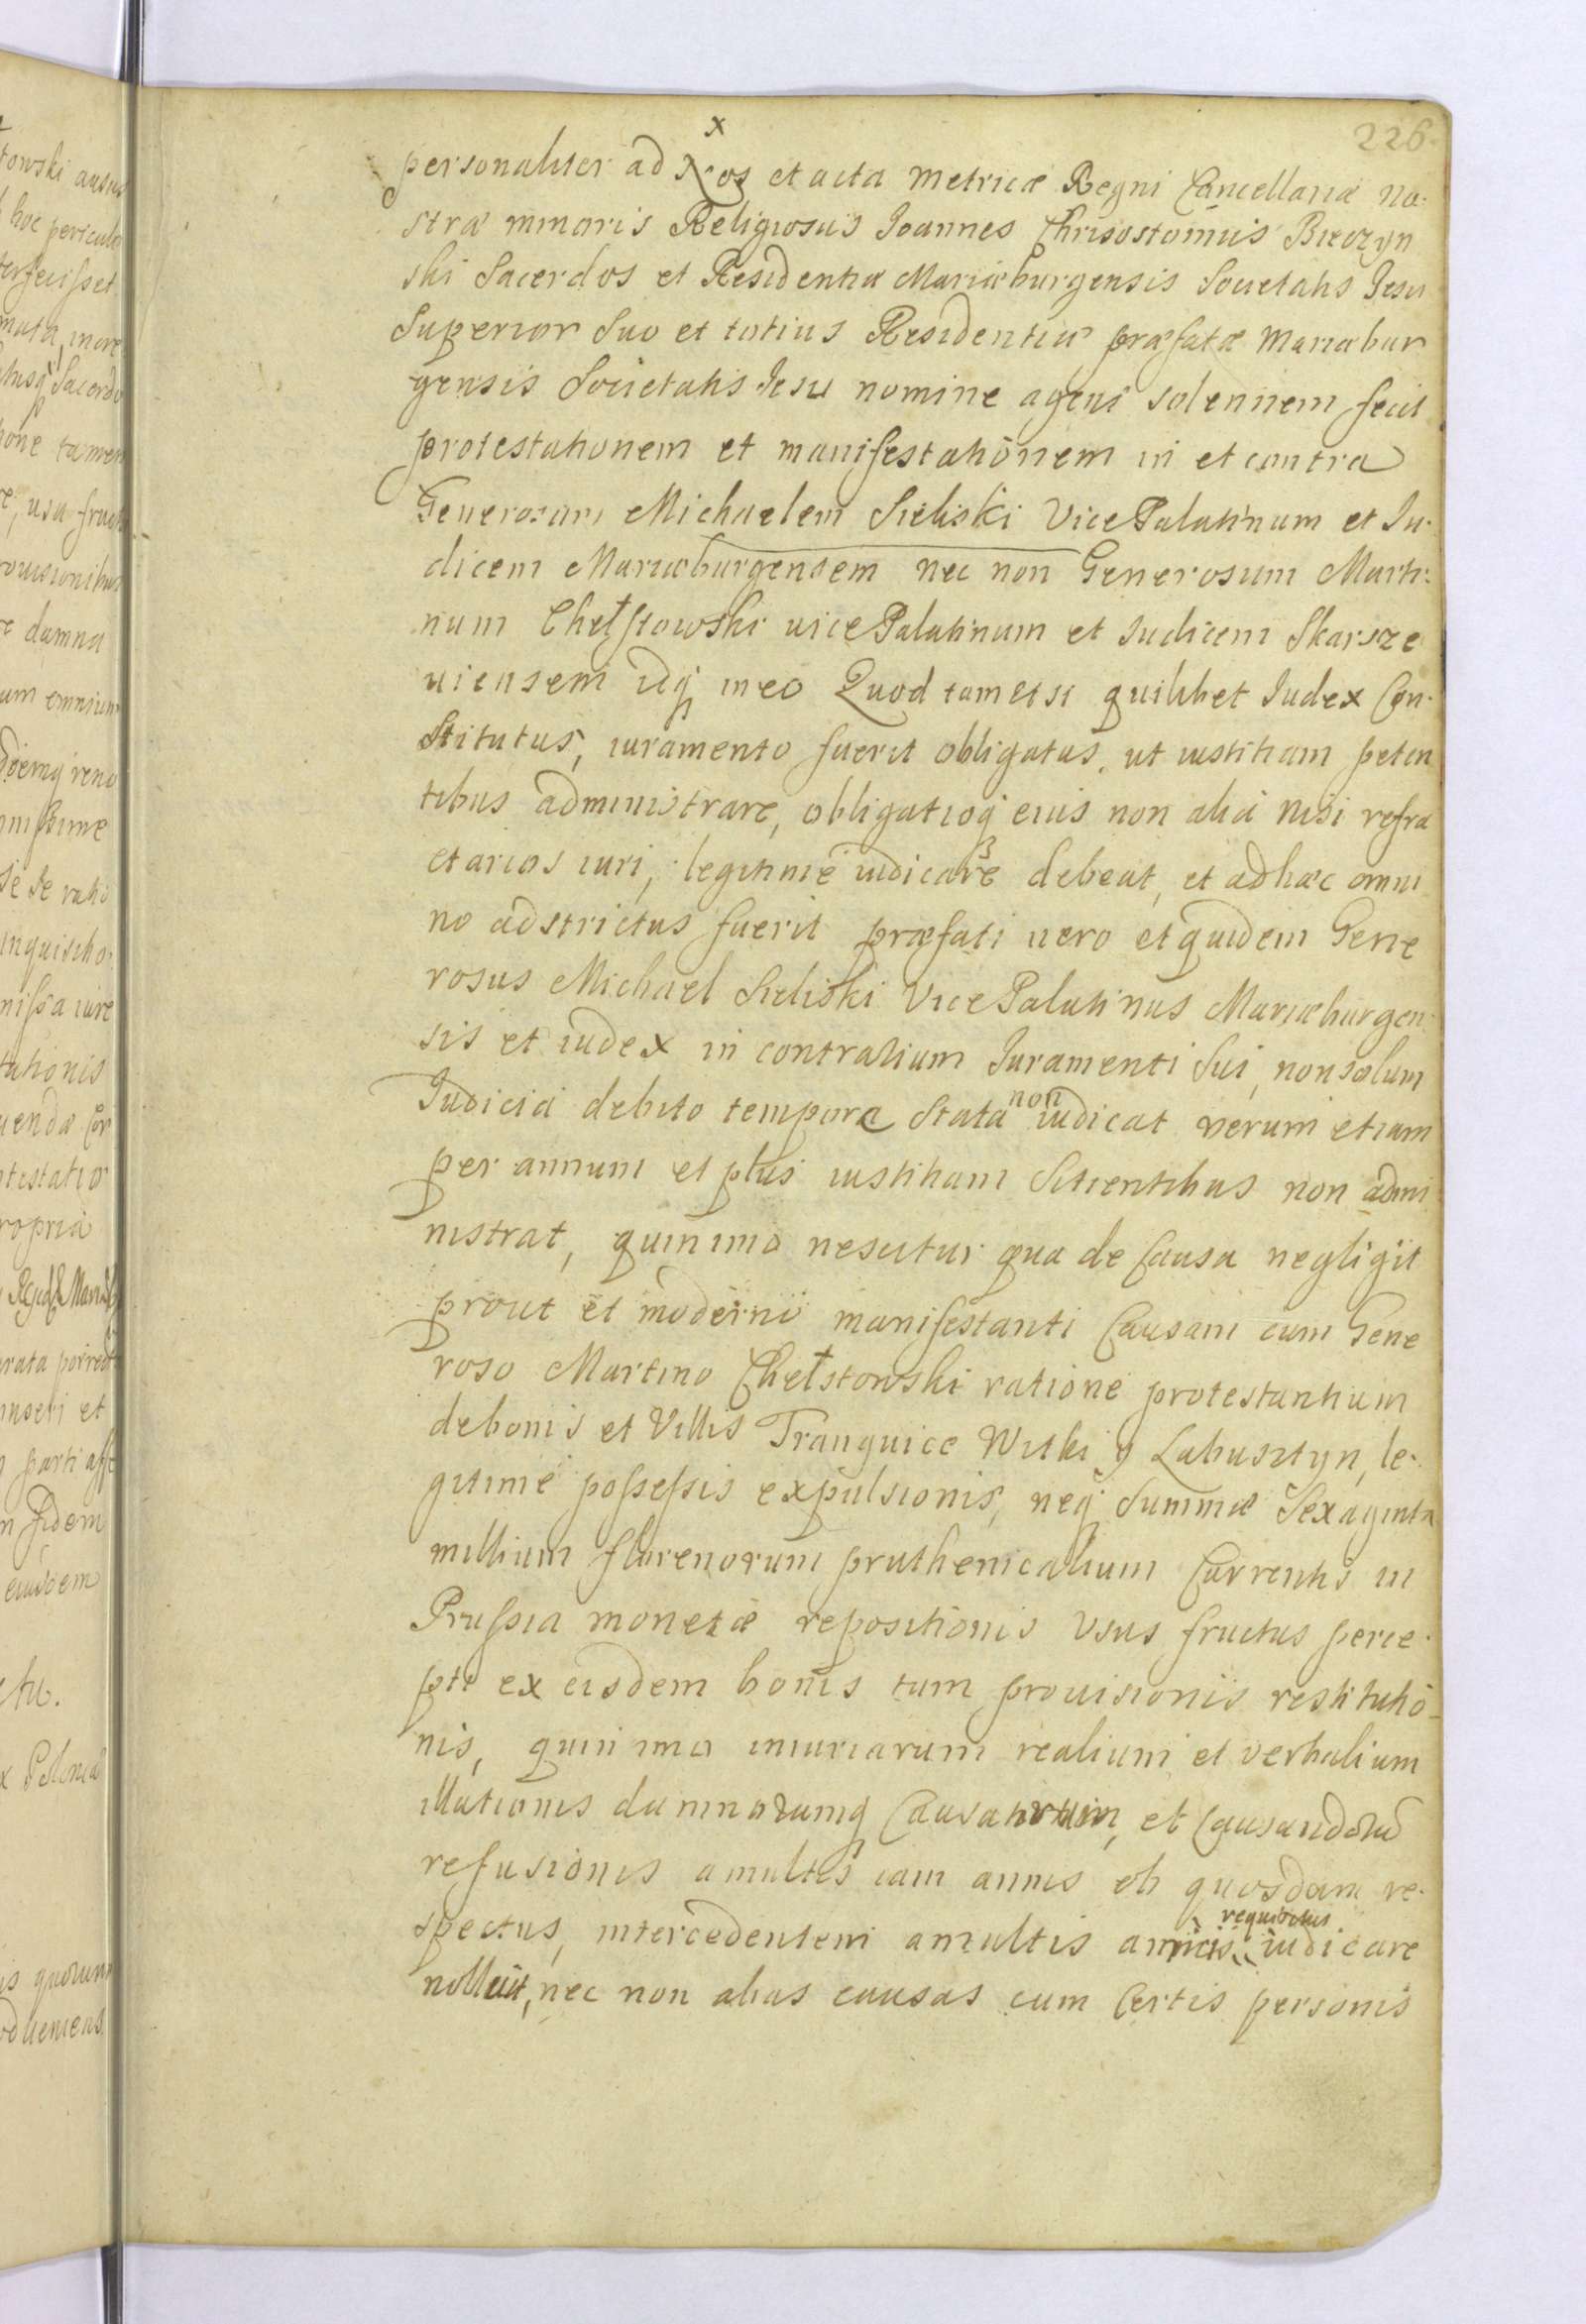 226.
personaliter ad Nos et acta Metricæ Regni Cancellariæ No-
stræ minoris Religiosus Ioannes Chrisostomus Bieczyn
ski Sacerdos et Residentiæ Mariæburgensis Societatis Iesu
Superior Suo et totius Residentiæ præfatæ Mariæbur
gensis Societatis Iesu nomine agens solennem fecit
protestationem et manifestationem in et contra
Generosum Michaelem Sieliski Vice Palatinum et Iu-
dicem Mariæburgensem nec non Generosum Marti-
num Chełstowski vice Palatinum et Iudicem Skarsze
viensem idq in eo Quod tametsi quilibet Iudex Con-
stitutus, iuramento fuerit obligatus, ut iustitiam peten
tibus administrare, obligatioq eius non alia nisi refra
ctarios iuri, legitime iudicare debeat, et ad hæc omni
no adstrictus fuerit præfati vero et quidem Gene
rosus Michael Sieliski Vice Palatinus Mariæburgen
sis et iudex in contrarium Iuramenti Sui, non solum
Iudicia debito tempore Stata non iudicat verum etiam
per annum et plus iustitiam Sitientibus non admi
nistrat, quinimo nescitur qua de Causa negligit
prout et moderni manifestanti Causam cum Gene
roso Martino Chełstowski ratione protestantium
de bonis et Villis Tranquice Witki y Labusztyn, le-
gitime possessis expulsionis, neq Summæ Sexaginta
millium florenorum pruthenicalium Currentis in
Prussia monetæ repositionis Usus fructus perce-
pti ex eisdem bonis tum provisionis restitutio
nis, quinimo iniuriarum realium et verbalium
illationis damnorumq Causatorum, et Causandorū
refusionis a multis iam annis ob quosdam re-
spectus, intercedentem a multis amicis requisitus iudicare
nolluit, nec non alias causas cum Certis personis